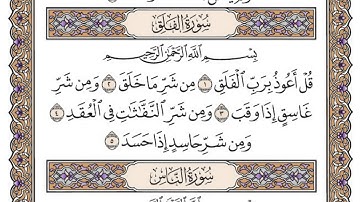 سُورَةُ الفَلَقِ
بِسْمِ اللَّهِ الرَّحْمَٰنِ الرَّحِيمِ
قُلْ أَعُوذُ بِرَبِّ الْفَلَقِ ١ مِن شَرِّ مَا خَلَقَ ٢ وَمِن شَرِّ
غَاسِقٍ إِذَا وَقَبَ ٣ وَمِن شَرِّ النَّفَّٰثَٰتِ فِي الْعُقَدِ ٤
وَمِن شَرِّ حَاسِدٍ إِذَا حَسَدَ ٥
سُورَةُ النَّاسِ